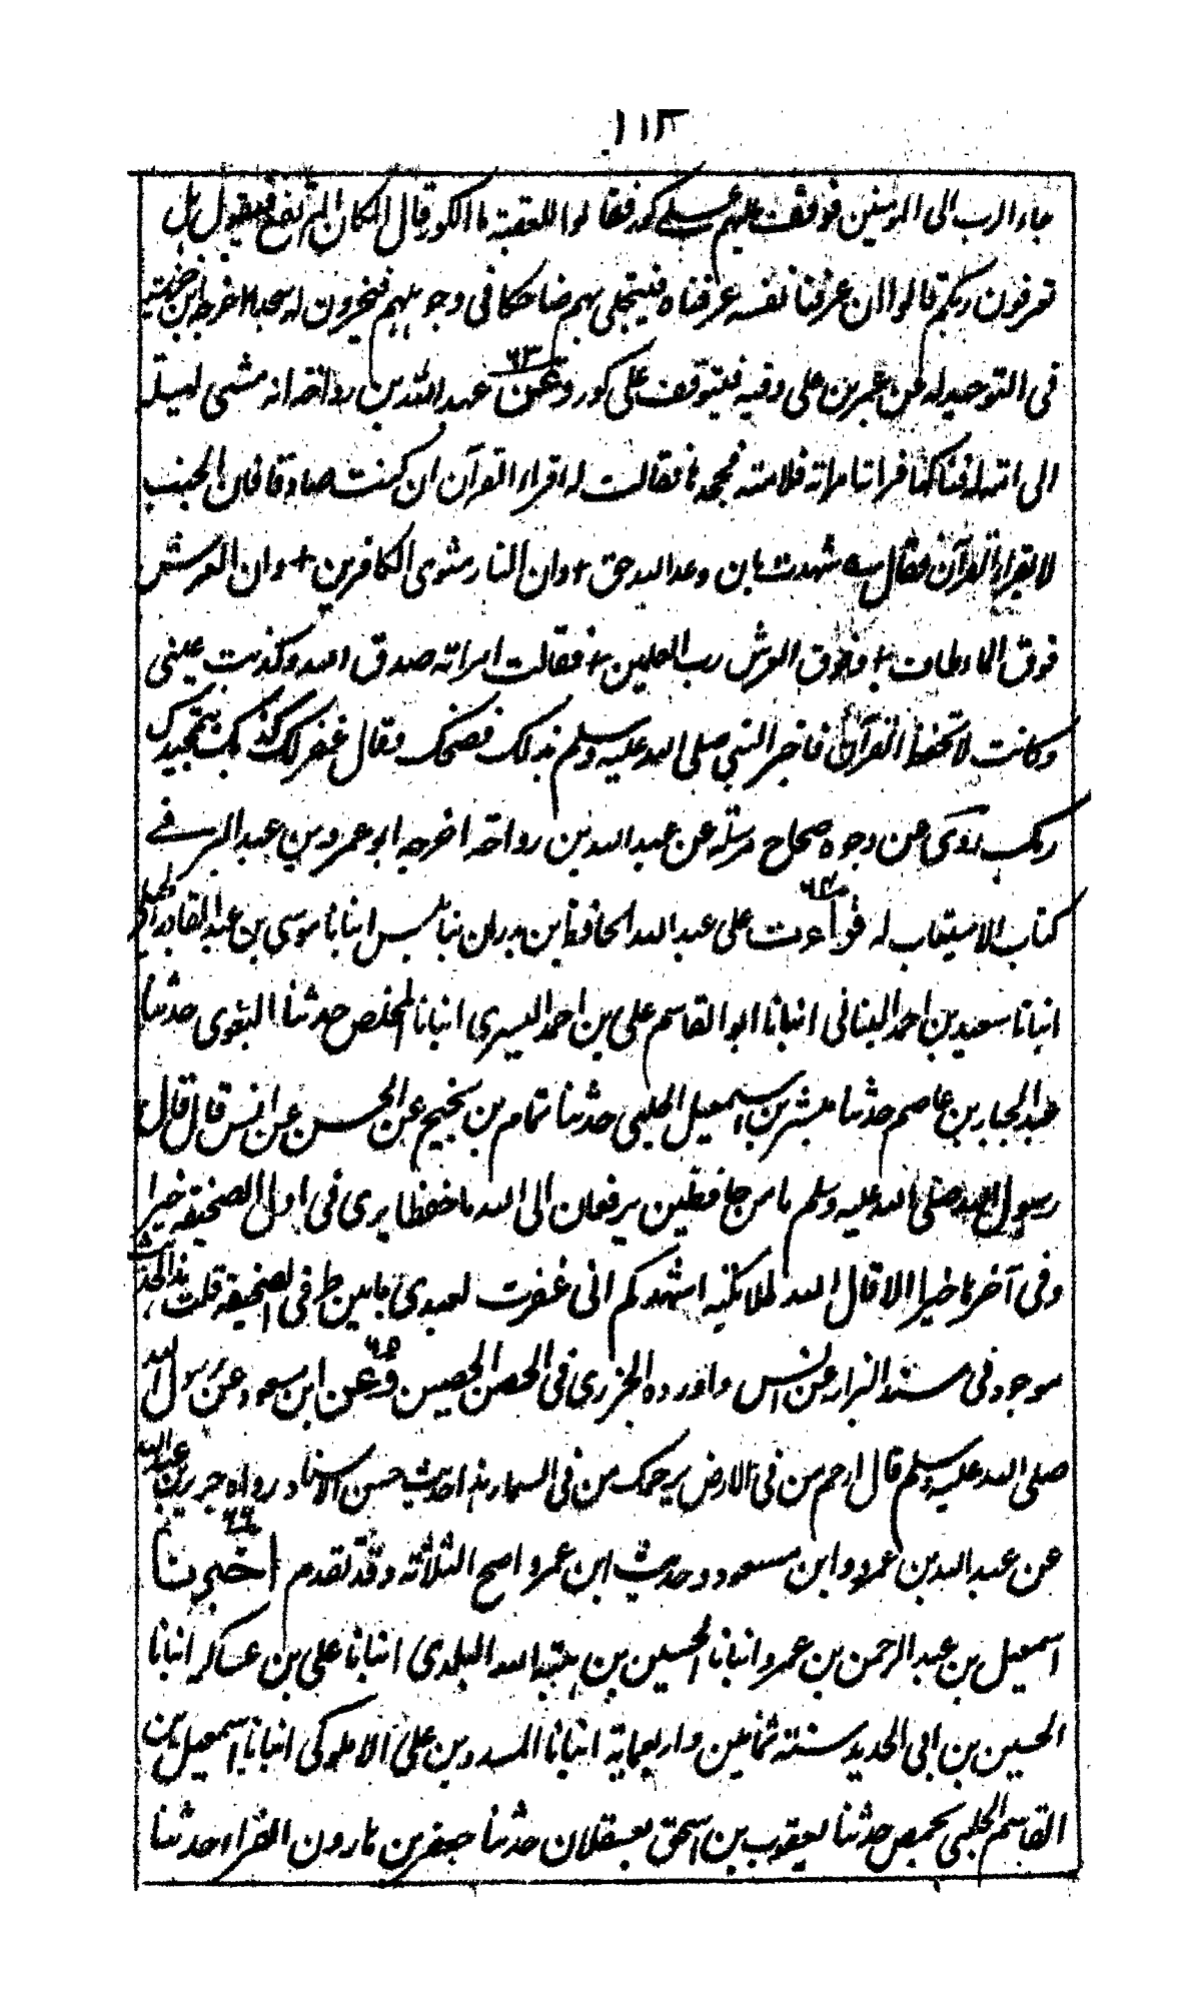 ١١٣
جاء الرب الى المومنين فوقف عليهم على كور فقالوا للعقبة ما الكور قال المكان المرتفع فيقول هل
تعرفون ربكم قالوا ان عرفنا نفسه عرفناه فيتجلى بهم ضاحكا فى وجوههم فيخرون له سجدا اخرجه ابن خزيمة
فى التوحيد له عن عمر بن على وفيه فيتوقف على كور ٦٣ وعن عبد الله بن رواحة انه مشى ليلة
الى امة له فنالها فراته امراته فلامته فجحدها فقالت له اقراء القرآن ان كنت صادقا فان الجنب
لا يقراء القرآن فقال سه شهدت بان وعد الله حق + وان النار مثوى الكافرين + وان العرش
فوق الماء طاف + وفوق العرش رب العلمين + فقالت امراته صدق الله وكذبت عينى
وكانت لا تحفظ القرآن فاخبر النبى صلى الله عليه وسلم بذلك فضحك وقال غفر لك
ربك روى عن وجوه صحاح مرسلة عن عبد الله بن رواحة اخرجه ابو عمرو بن عبد البر فى
كتاب الاستيعاب له ٦٤ قراءت على عبد الله الحافظ بن بدران بنابلس انبانا موسى بن عبد القادر الجيلى
انبانا سعيد بن احمد البنانى انبانا ابو القاسم على بن احمد اليسرى انبانا المخلص حدثنا البغوى حدثنا
عبد الجبار بن عاصم حدثنا مبشر بن اسمعيل الحلبى حدثنا تمام بن نجيح عن الحسن عن انس قال قال
رسول الله صلى الله عليه وسلم ما من حافظين يرفعان الى الله ما حفظا يرى فى اول الصحيفة خيرا
وفى آخرها خيرا الا قال الله لملائكته اشهدكم انى غفرت لعبدى ما بين طرفى الصحيفة قلت هذا الحديث
موجود فى مسند البزار عن انس واورده الجزرى فى الحصن الحصين ٦٥ وعن ابن مسعود عن رسول الله
صلى الله عليه وسلم قال ارحم من فى الارض يرحمك من فى السماء هذا حديث حسن الاسناد رواه جرير بن عبد الله
عن عبد الله بن عمرو وابن مسعود وحديث ابن عمرو اصح الثلاثة وقد تقدم ٦٦ اخبرنا
اسمعيل بن عبد الرحمن بن عمرو انبانا الحسين بن هبة الله البلدى انبانا على بن عساكر انبانا
الحسين بن ابى الحديد سنة ثمانين واربعماية انبانا المسدد بن على الاملوكى انبانا اسمعيل بن
القاسم الحلبى بحمص حدثنا يعقوب بن اسحق بعسقلان حدثنا جعفر بن هارون الفراء حدثنا